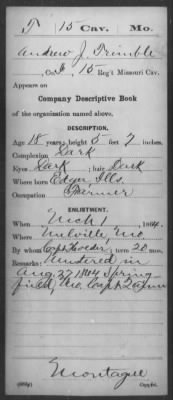 T 15 Cav. Mo.
Andrew J. Trimble
, Co. , 15 Reg't Missouri Cav.
Appears on
Company Descriptive Book
of the organization named above.
DESCRIPTION.
Age 18 years; height 5 feet 7 inches.
Complexion Dark
Eyes Dark ; hair Dark
Where born Edgar Ills.
Occupation Farmer
ENLISTMENT.
When Mch 1 , 1864.
Where Melville, Mo.
By whom Capt ; term 20 mos.
Remarks: Mustered in
Aug. 1864 Spring
field, Mo. Capt
Montague
Copyist.